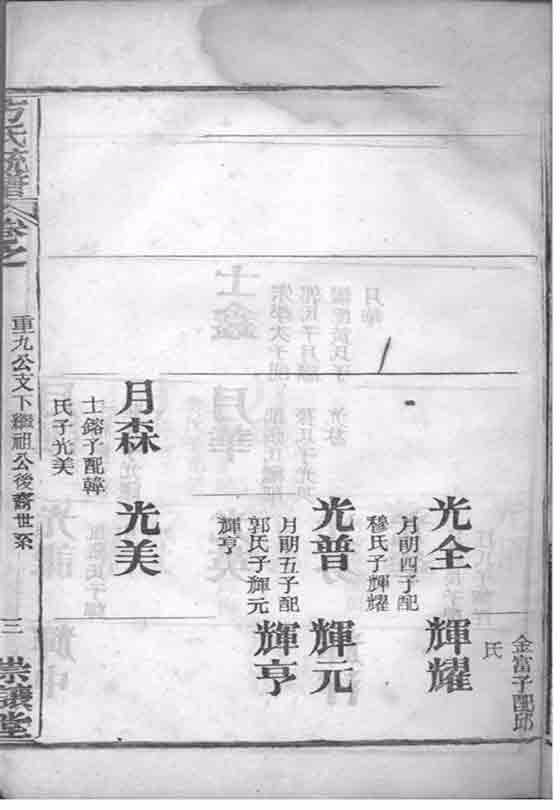 金富子配邱
氏
光全
月朗四子配
穆氏子輝耀
輝耀
光普
月朗五子配
郭氏子輝元
輝亨
輝元
輝亨
月森
士鎔子配韓
氏子光美
光美
方氏統譜
卷之
重九公支下繼祖公後裔世系
三
崇讓堂